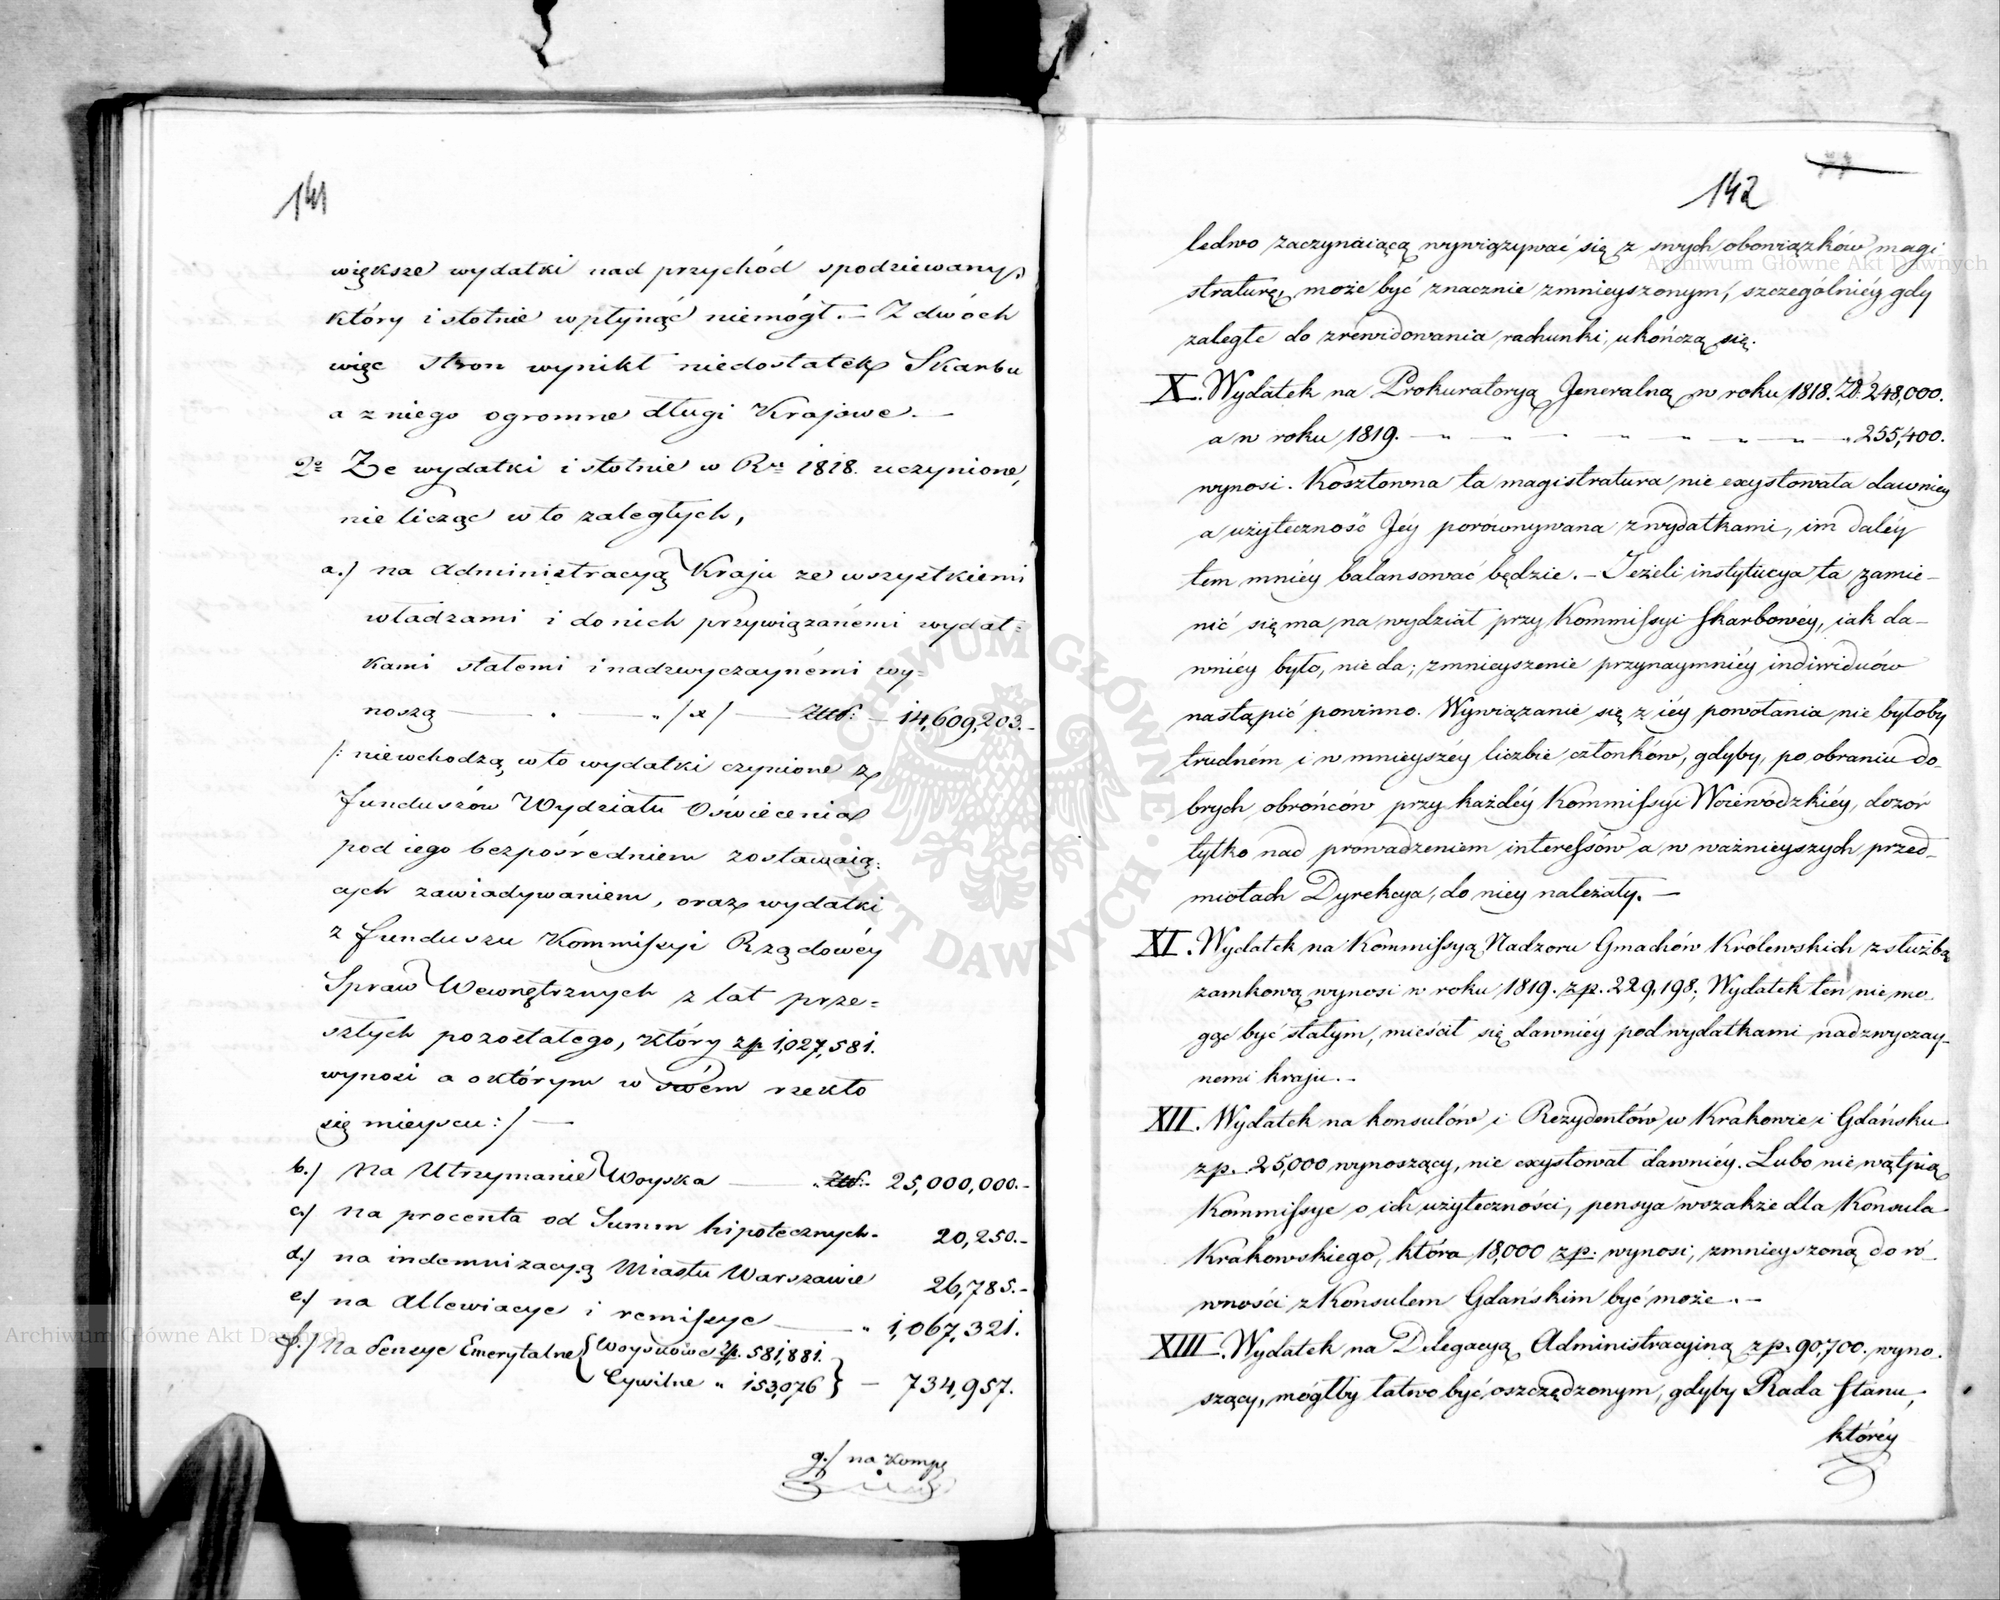 141
większe wydatki nad przychód spodziewany,
który istotnie wpłynąć niemógł. — Z dwóch
więc stron wynikł niedostatek Skarbu
a z niego ogromne długi Krajowe. —
2º Że wydatki istotnie w Ru 1818. uczynione,
nie licząc w to zaległych,
a./ na Administracyą Kraju ze wszystkiemi
władzami i do nich przywiązanémi wydat=
kami stałemi i nadzwyczaynémi wy=
noszą — " — " /x/ — Złtt: — 14,609,203.-
/: niewchodzą w to wydatki czynione z
funduszów Wydziału Oświecenia
pod iego bezpośredniem zostawaią=
cych zawiadywaniem, oraz wydatki
z funduszu Kommissyi Rządowéy
Spraw Wewnętrznych z lat prze=
szłych pozostałego, który zp 1,027,581.
wynosi a o którym w swóem rzekło
się mieyscu :/ —
b./ Na Utrzymanie Woyska — " Złtt: 25,000,000.-
c./ na procenta od Summ hipotecznych - 20,250.-
d./ na indemnizacyą Miastu Warszawie 26,785.-
e./ na Allewiacye i remissye — " 1,067,321.
f./ Na Pensye Emerytalne { Woyskowe Zp. 581,881.
Cywilne " 153,076 } — 734,957.
g./ na Kompe
142
ledwo zaczynaiącą wywiązywać się z swych obowiązków magi
straturę, może być znacznie zmnieyszonym, szczególniéy gdy
zaległe do zrewidowania rachunki, ukończą się.
X. Wydatek na Prokuratoryą Jeneralną w roku 1818. Zł. 248,000.
a w roku 1819. — " — " — " — " — " 255,400.
wynosi. Kosztowna ta magistratura nie exystowała dawniey
a użyteczność Jéy porównywana z wydatkami, im daléy
tem mniéy balansować będzie. — Jeżeli instytucya ta zamie-
nić się ma na wydział przy Kommissyi Skarbowéy, iak da-
wniéy było, nie da; zmnieyszenie przynaymniéy indiwiduów
nastąpić powinno. Wywiązanie się z iéy powołania nie byłoby
trudném i w mnieyszéy liczbie członków, gdyby, po obraniu do-
brych obrońców przy każdéy Kommissyi Woiewódzkiéy, dozór
tylko nad prowadzeniem interessów a w ważnieyszych przed-
miotach Dyrekcya, do niey należały. —
XI. Wydatek na Kommissyą Nadzoru Gmachów Królewskich z służbą
zamkową wynosi w roku 1819. zp. 229,198; Wydatek ten nie mo
gąc być stałym, mieścił się dawniéy pod wydatkami nadzwyczay-
nemi kraju. -
XII. Wydatek na konsulów i Rezydentów w Krakowie i Gdańsku
zp. 25,000 wynoszący, nie exystował dawniéy. Lubo nie wątpią
Kommissye o ich użyteczności, pensya wszakże dla Konsula
Krakowskiego, która 18,000 zp. wynosi, zmnieyszoną do ró-
wności z Konsulem Gdańskim być może. —
XIII. Wydatek na Delegacyą Administracyiną zp. 90,700. wyno.
szący, mógłby łatwo być oszczędzonym, gdyby Rada Stanu,
któréy
Archiwum Główne Akt Dawnych
Archiwum Główne Akt Dawnych
ARCHIWUM GŁÓWNE · AKT DAWNYCH ·